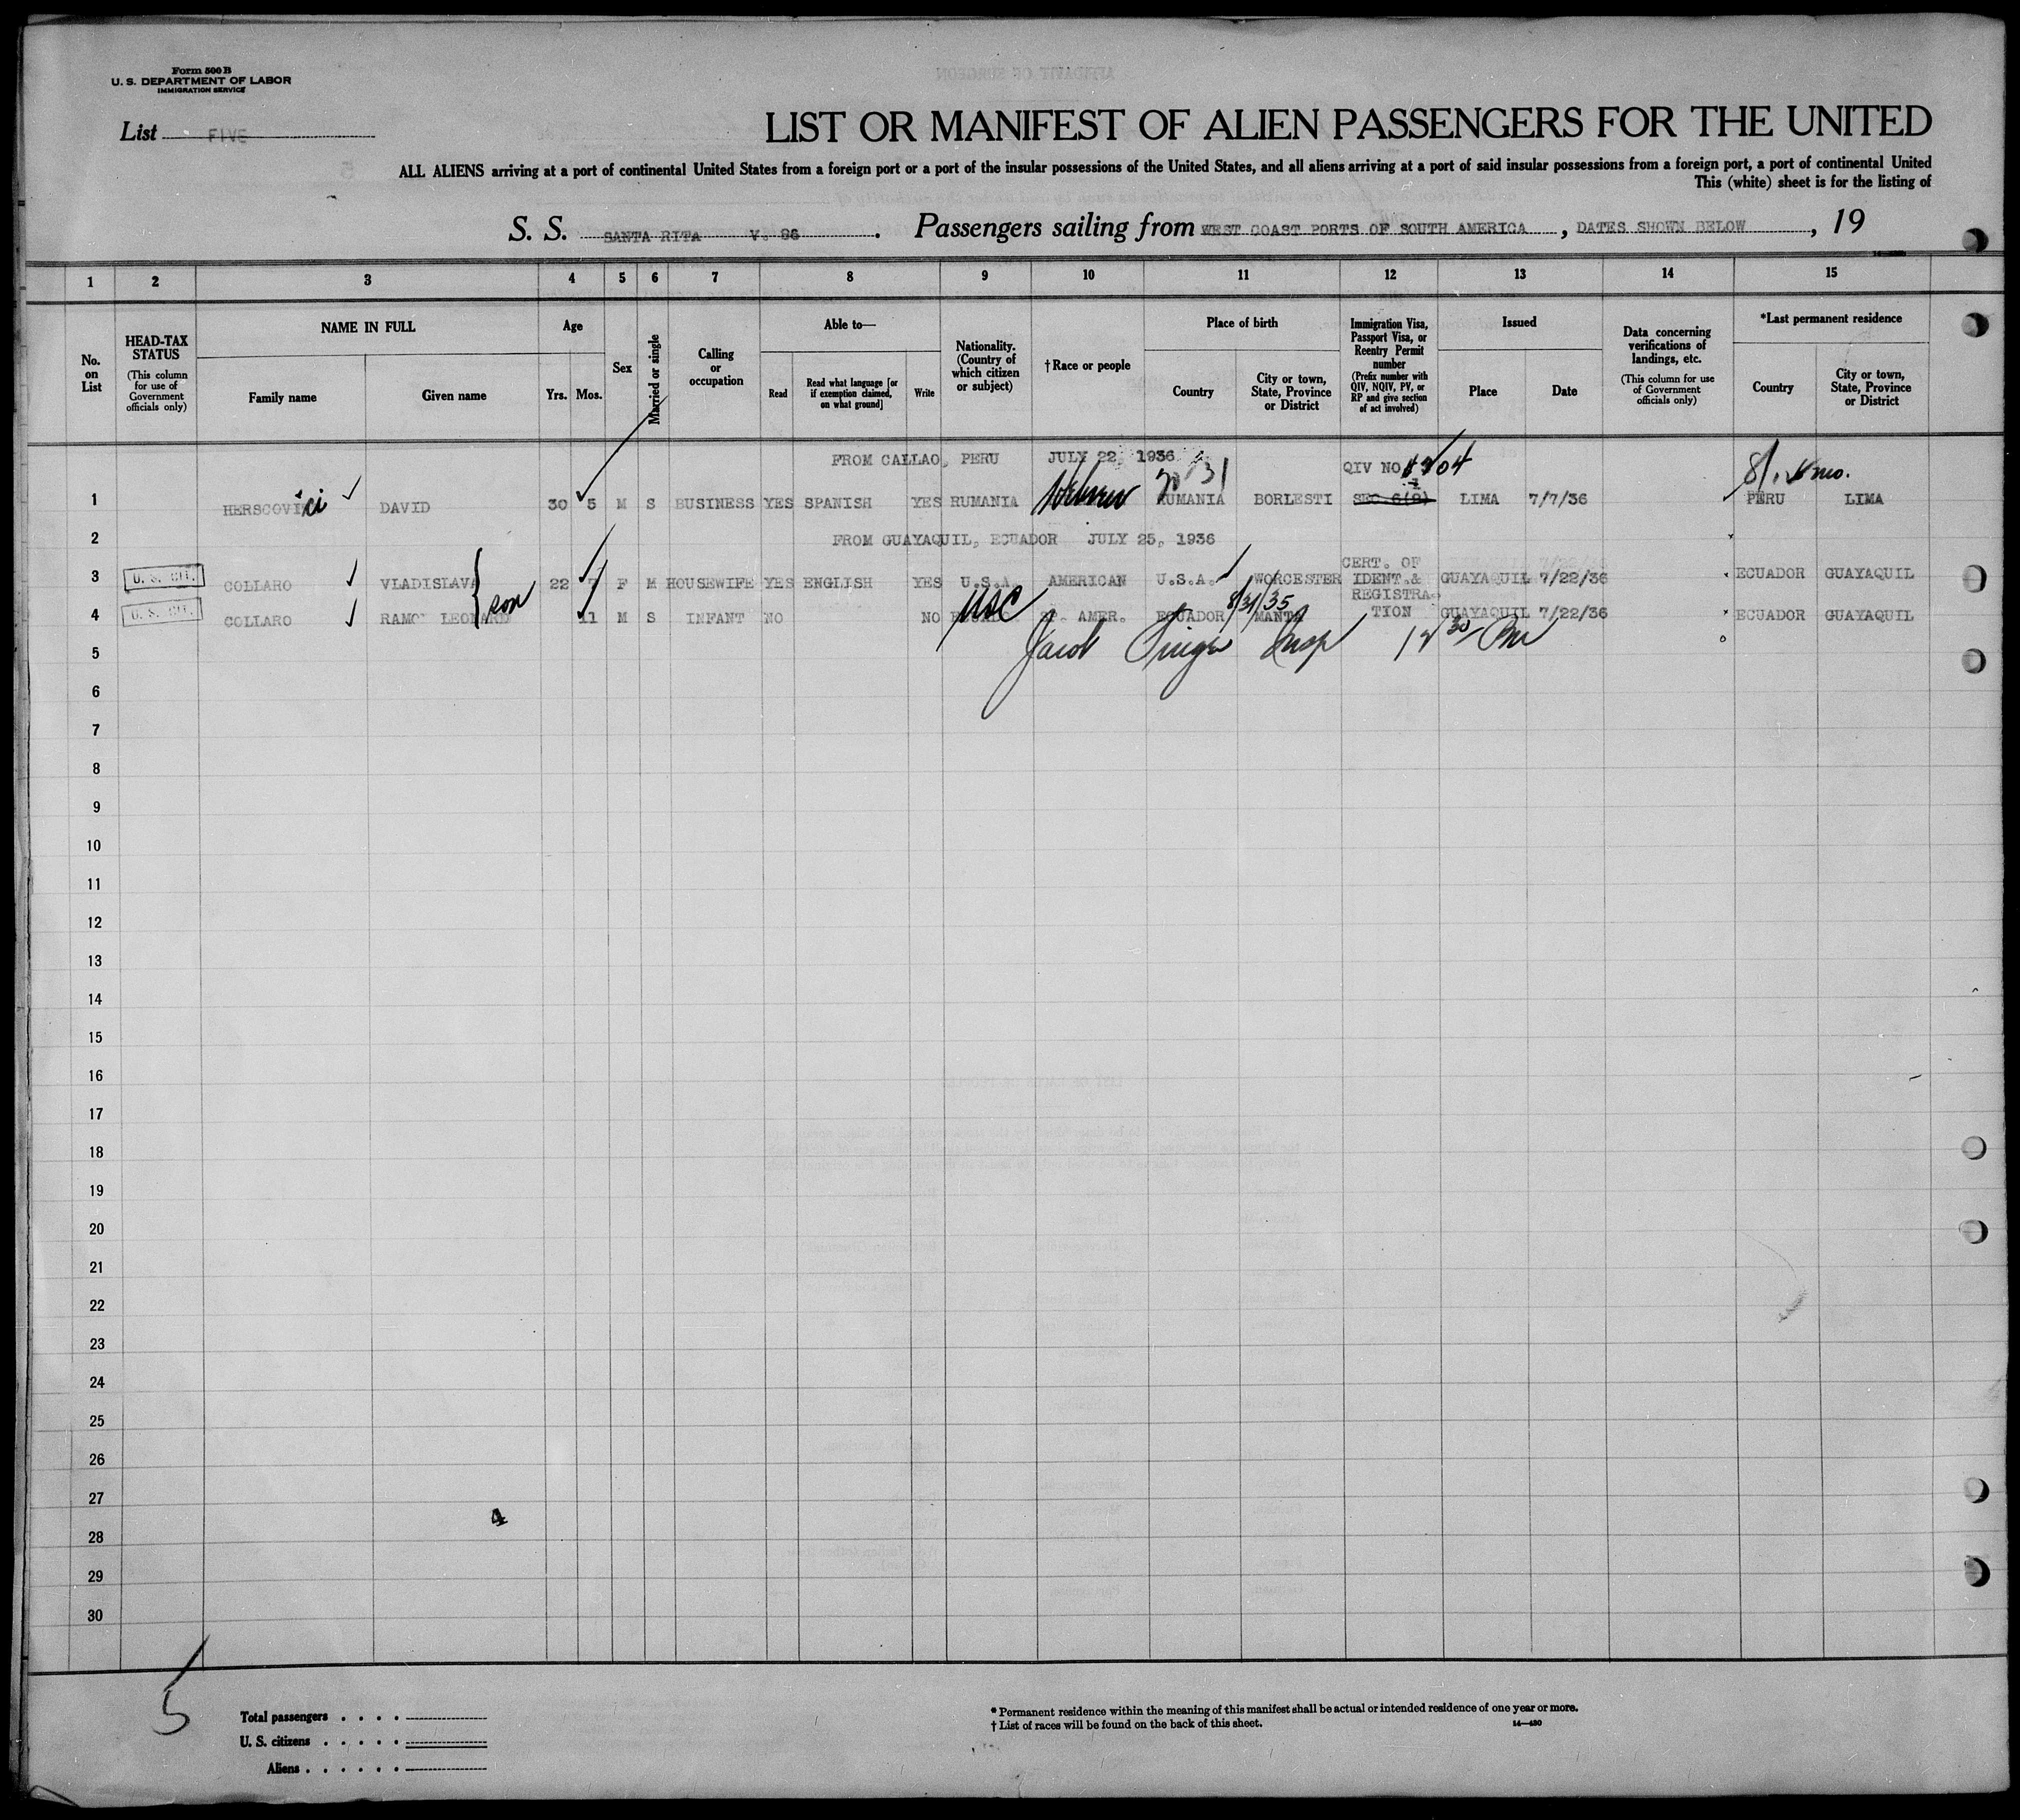 Form 500 B
U. S. DEPARTMENT OF LABOR
IMMIGRATION SERVICE
List FIVE
LIST OR MANIFEST OF ALIEN PASSENGERS FOR THE UNITED
ALL ALIENS arriving at a port of continental United States from a foreign port or a port of the insular possessions of the United States, and all aliens arriving at a port of said insular possessions from a foreign port, a port of continental United
This (white) sheet is for the listing of
S. S. SANTA RITA V. 86. Passengers sailing from WEST COAST PORTS OF SOUTH AMERICA, DATES SHOWN BELOW, 19
1 2 3 4 5 6 7 8 9 10 11 12 13 14 15
No. on List
HEAD-TAX STATUS
(This column for use of Government officials only)
NAME IN FULL
Family name Given name
Age
Yrs. Mos.
Sex
Married or single
Calling or occupation
Able to—
Read
Read what language [or if exemption claimed, on what ground]
Write
Nationality. (Country of which citizen or subject)
†Race or people
Place of birth
Country
City or town, State, Province or District
Immigration Visa, Passport Visa, or Reentry Permit number
(Prefix number with QIV, NQIV, PV, or RP and give section of act involved)
Issued
Place Date
Data concerning verifications of landings, etc.
(This column for use of Government officials only)
*Last permanent residence
Country
City or town, State, Province or District
FROM CALLAO, PERU JULY 22, 1936 QIV NO
1 HERSCOVICI DAVID 30 5 M S BUSINESS YES SPANISH YES RUMANIA Hebrew RUMANIA BORLESTI SEC 6(8) LIMA 7/7/36 PERU LIMA
2 FROM GUAYAQUIL, ECUADOR JULY 25, 1936
3 U. S. CIT. COLLARO VLADISLAVA 22 7 F M HOUSEWIFE YES ENGLISH YES U.S.A. AMERICAN U.S.A. WORCESTER CERT. OF IDENT. & GUAYAQUIL 7/22/36 ECUADOR GUAYAQUIL
4 U. S. CIT. COLLARO RAMON LEONARD son 11 M S INFANT NO NO USC SP. AMER. ECUADOR 8/31/35 MANTA REGISTRATION GUAYAQUIL 7/22/36 ECUADOR GUAYAQUIL
5 Jacob Insp
6
7
8
9
10
11
12
13
14
15
16
17
18
19
20
21
22
23
24
25
26
27
4
28
29
30
5
Total passengers
U. S. citizens
Aliens
* Permanent residence within the meaning of this manifest shall be actual or intended residence of one year or more.
† List of races will be found on the back of this sheet.
14—430